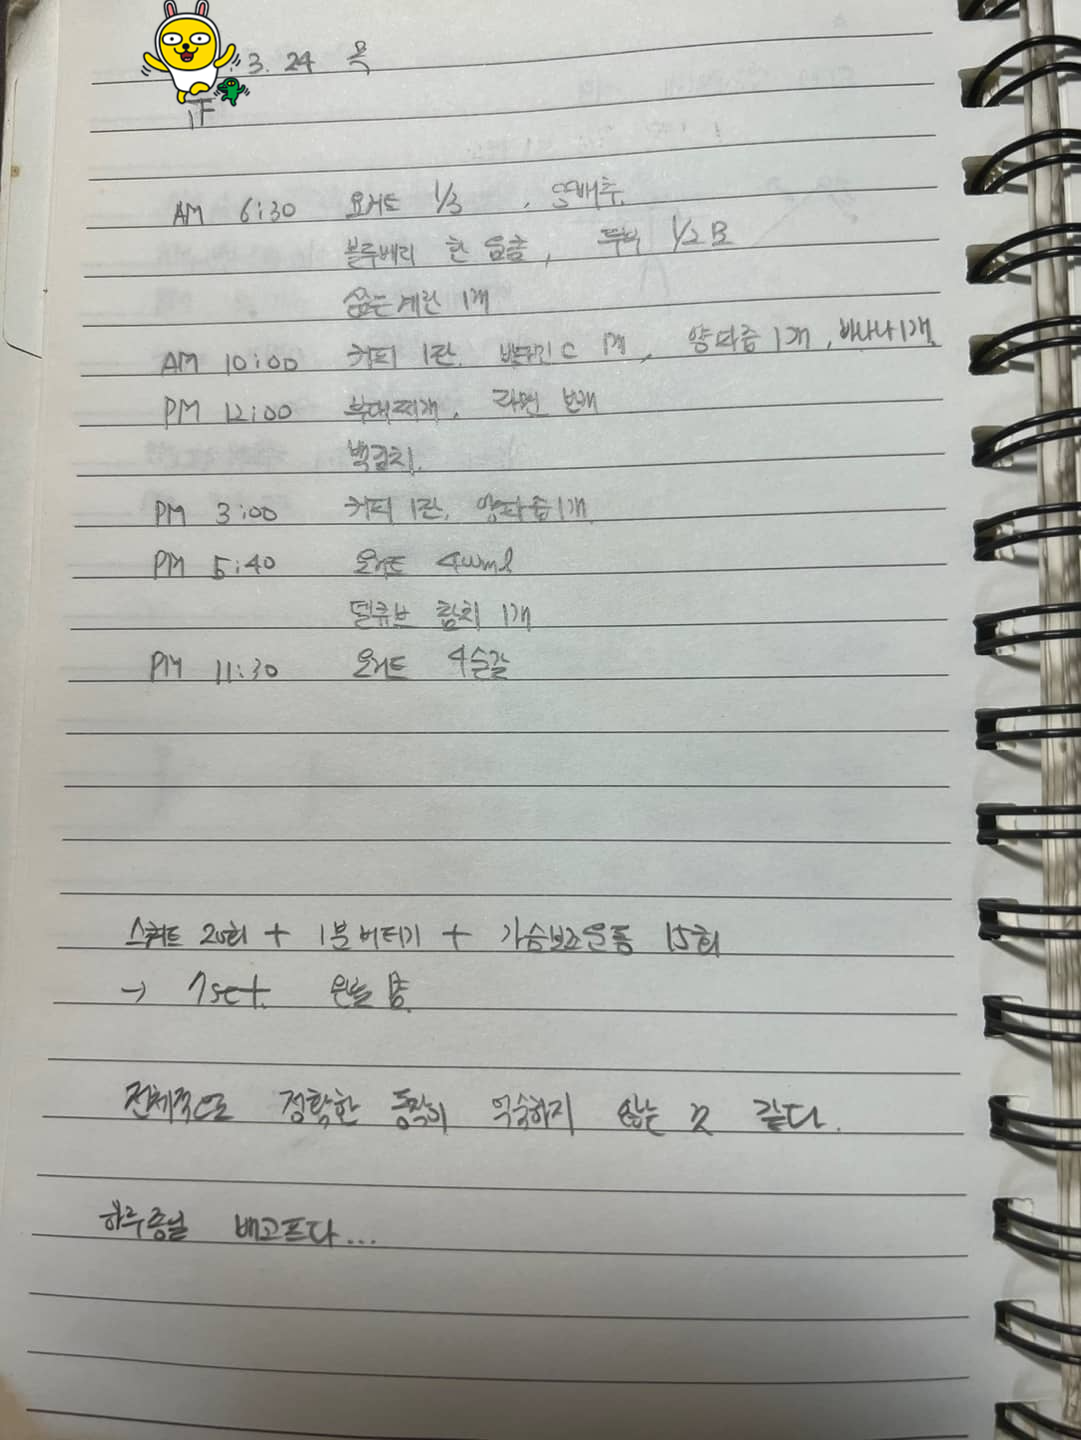 3. 24 목
正
AM 6:30 요거트 1/3 , 양배추.
블루베리 한 움큼, 두부 1/2모
삶은계란 1개
AM 10:00 커피 1잔. 비타민 C 1개, 양파즙 1개, 바나나 1개.
PM 12:00 부대찌개, 라면 번개
백김치.
PM 3:00 커피 1잔. 양파즙 1개.
PM 5:40 요거트 400ml
델큐브 참치 1개
PM 11:30 요거트 4숟갈
스쿼트 20회 + 1분 버티기 + 가슴보조운동 15회
→ 7set.
전체적으로 정확한 동작이 익숙하지 않는 것 같다.
하루종일 배고프다...